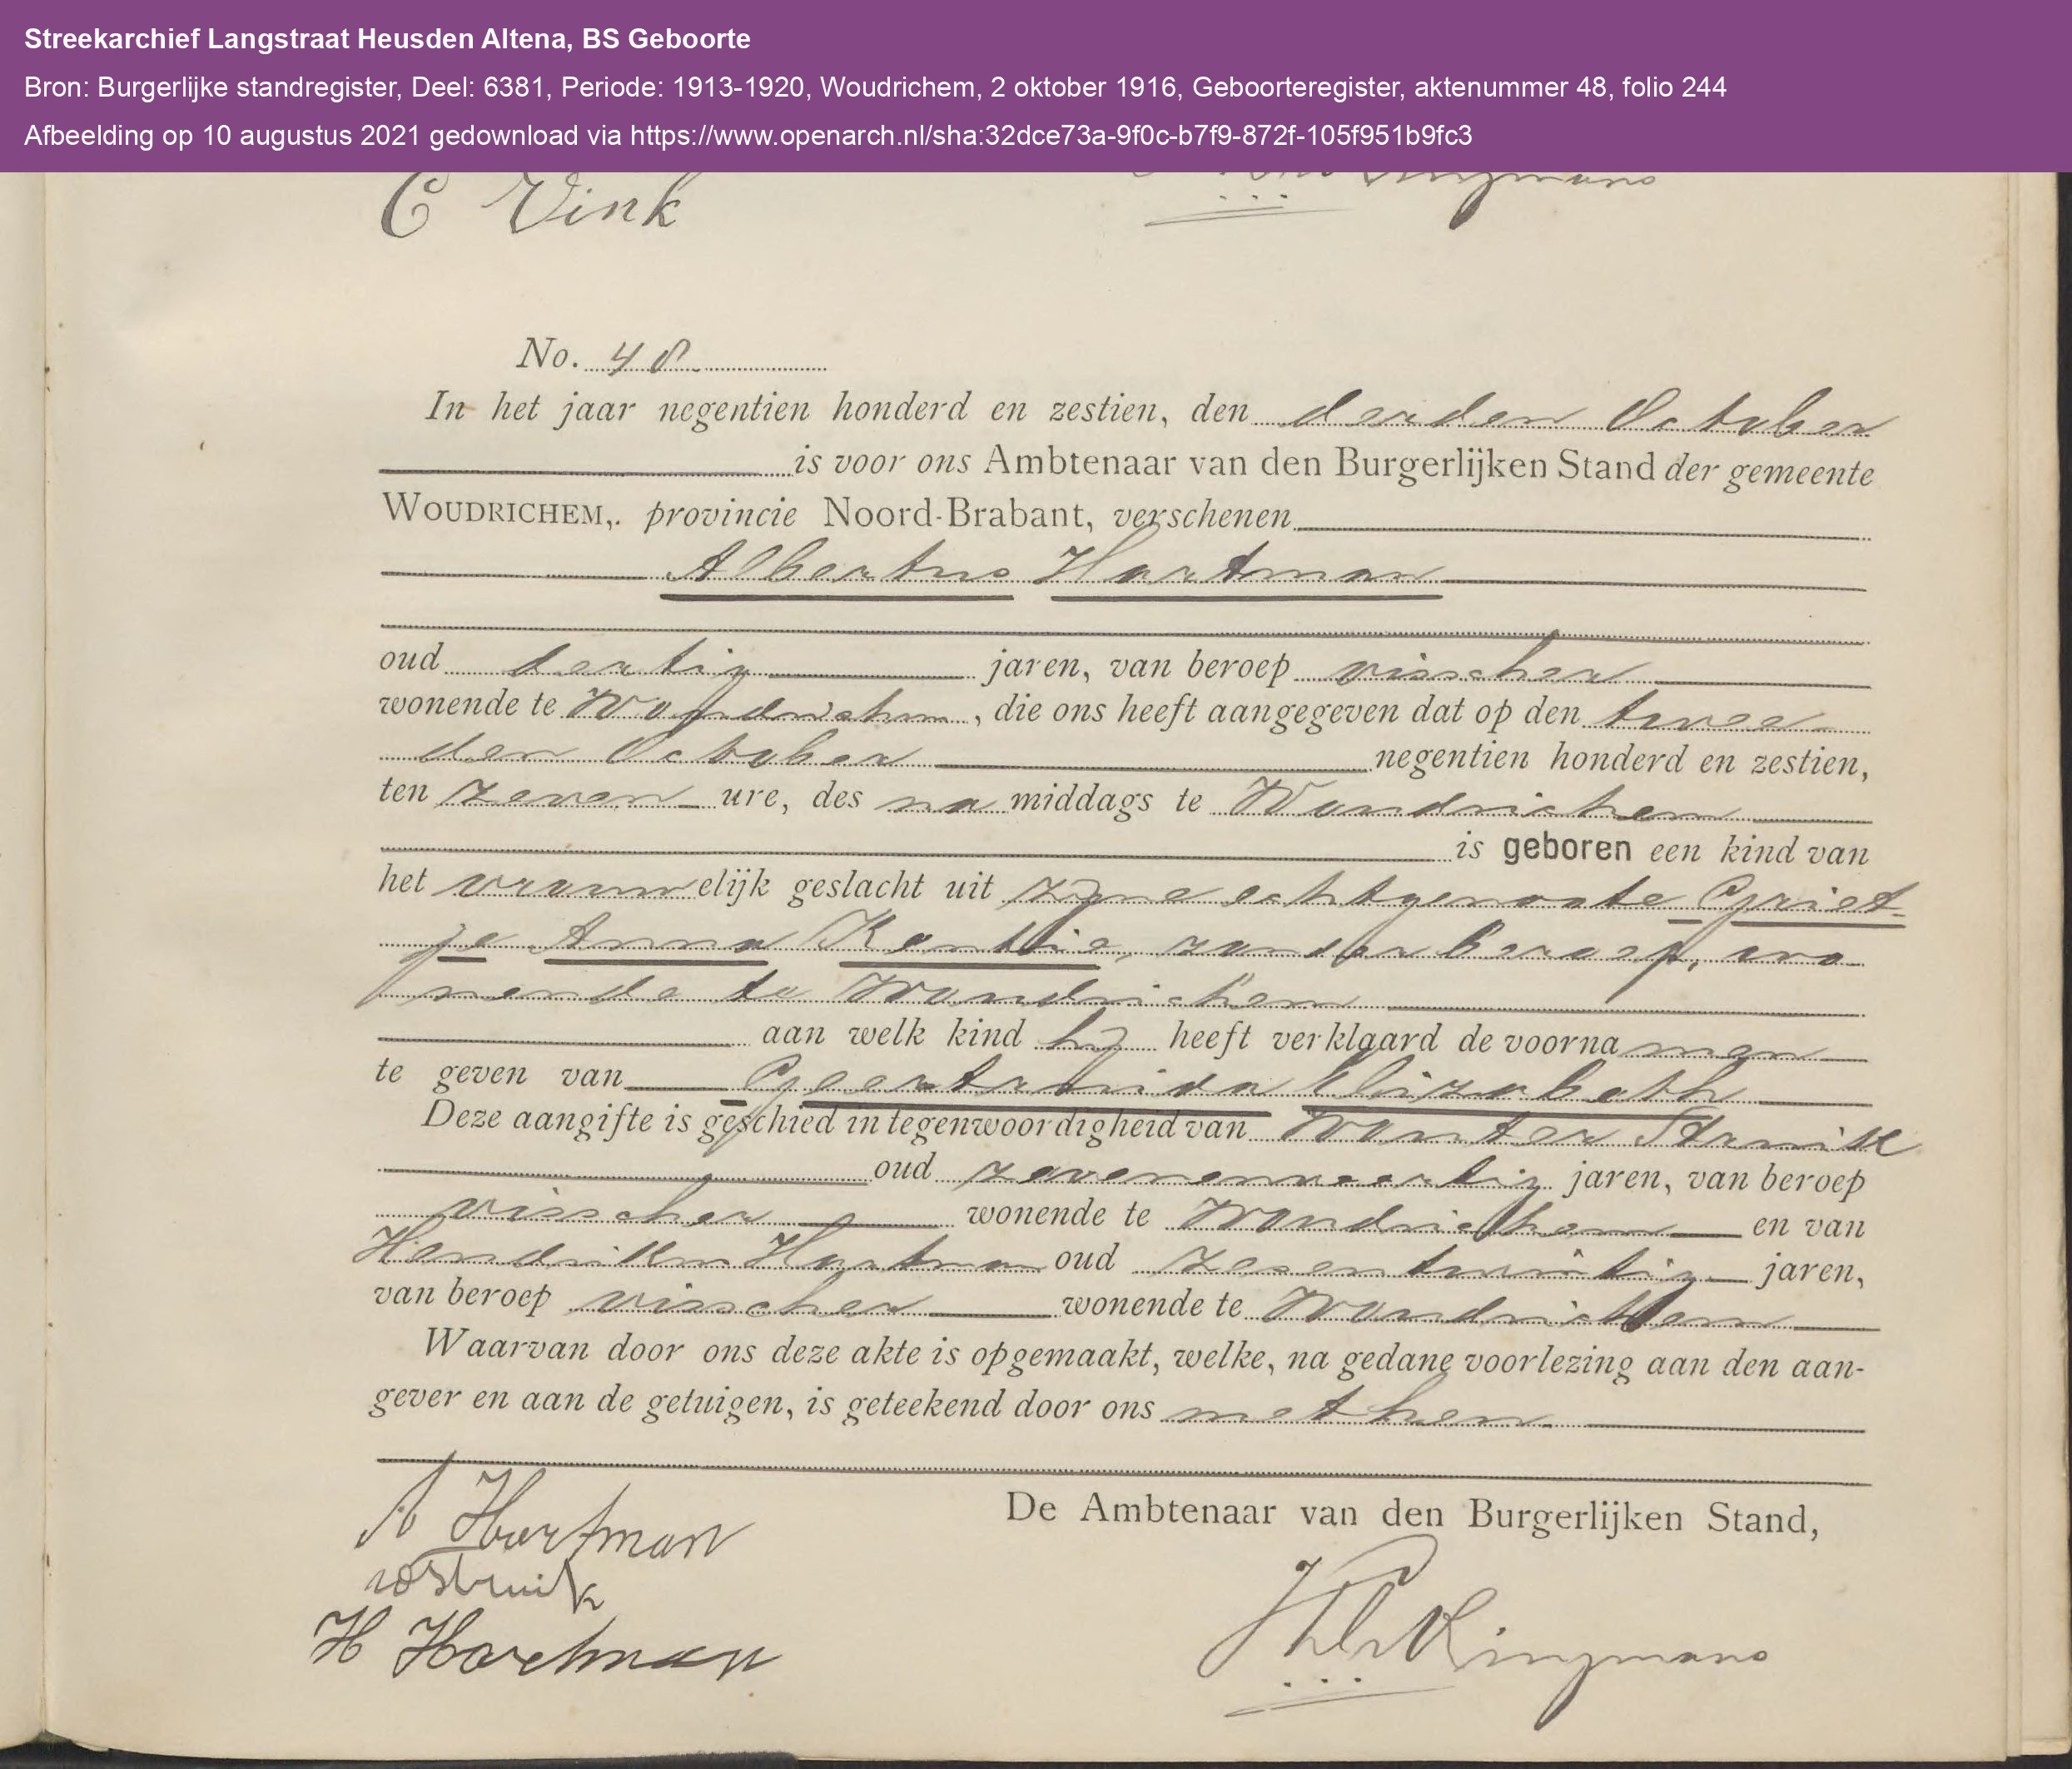 Streekarchief Langstraat Heusden Altena, BS Geboorte
Bron: Burgerlijke standregister, Deel: 6381, Periode: 1913-1920, Woudrichem, 2 oktober 1916, Geboorteregister, aktenummer 48, folio 244
Afbeelding op 10 augustus 2021 gedownload via https://www.openarch.nl/sha:32dce73a-9f0c-b7f9-872f-105f951b9fc3
C Vink
No. 48
In het jaar negentien honderd en zestien, den derden October
is voor ons Ambtenaar van den Burgerlijken Stand der gemeente
WOUDRICHEM, provincie Noord-Brabant, verschenen
Albertus Hartman
oud dertig jaren, van beroep visscher
wonende te Woudrichem, die ons heeft aangegeven dat op den twee
den October negentien honderd en zestien,
ten zeven ure, des na middags te Woudrichem
is geboren een kind van
het vrouwelijk geslacht uit zijne echtgenoote Griet
je Anna Kentie, zonder beroep, wo
nende te Woudrichem
aan welk kind hij heeft verklaard de voornamen
te geven van Geertruida Elizabeth
Deze aangifte is geschied in tegenwoordigheid van Wouter Struik
oud zevenenveertig jaren, van beroep
visscher wonende te Woudrichem en van
Hendrikus Hartman oud zesentwintig jaren,
van beroep visscher wonende te Woudrichem
Waarvan door ons deze akte is opgemaakt, welke, na gedane voorlezing aan den aan-
gever en aan de getuigen, is geteekend door ons met hen
De Ambtenaar van den Burgerlijken Stand,
A Hartman
W Struik
H Hartman